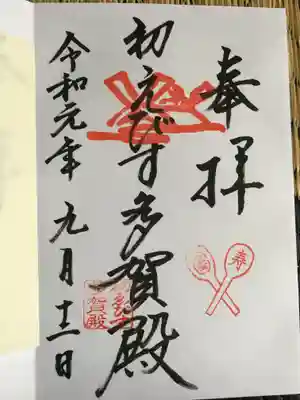 奉拝
初えびす多賀殿
令和元年 九月十三日
寿
賀殿